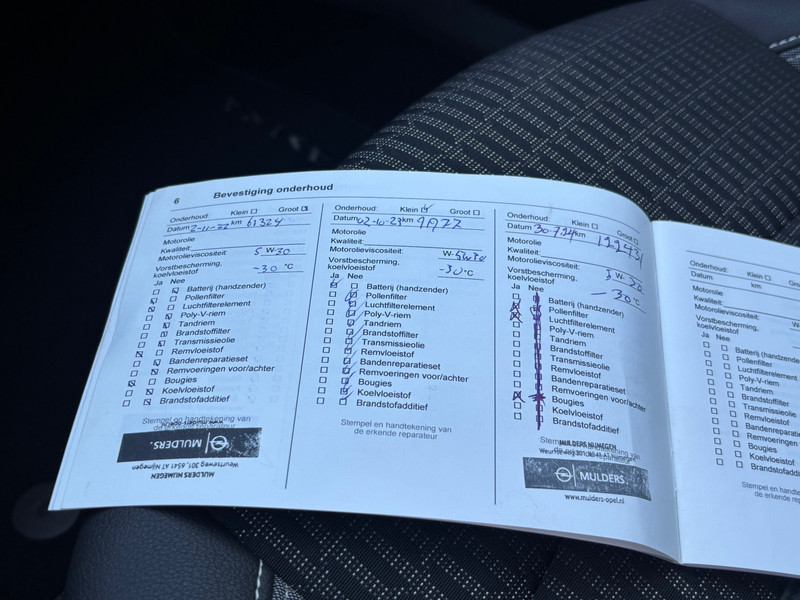 6
Bevestiging onderhoud
Onderhoud: Klein Groot
Datum 2-11-22 km 61324
Motorolie
Kwaliteit:
Motorolieviscositeit: 5 W-30
Vorstbescherming,
koelvloeistof -30 °C
Ja Nee
Batterij (handzender)
Pollenfilter
Luchtfilterelement
Poly-V-riem
Tandriem
Brandstoffilter
Transmissieolie
Remvloeistof
Bandenreparatieset
Remvoeringen voor/achter
Bougies
Koelvloeistof
Brandstofadditief
Stempel en handtekening van
de erkende reparateur
www.mulders-opel.nl
MULDERS.
Weurtseweg 301, 6541 AT Nijmegen
MULDERS NIJMEGEN
Onderhoud: Klein Groot
Datum 02-10-23 km
Motorolie
Kwaliteit:
Motorolieviscositeit: W-
Vorstbescherming,
koelvloeistof -30 °C
Ja Nee
Batterij (handzender)
Pollenfilter
Luchtfilterelement
Poly-V-riem
Tandriem
Brandstoffilter
Transmissieolie
Remvloeistof
Bandenreparatieset
Remvoeringen voor/achter
Bougies
Koelvloeistof
Brandstofadditief
Stempel en handtekening van
de erkende reparateur
Onderhoud: Klein Groot
Datum 30-7-24 km 122431
Motorolie
Kwaliteit:
Motorolieviscositeit: 5 W-30
Vorstbescherming,
koelvloeistof -30 °C
Ja Nee
Batterij (handzender)
Pollenfilter
Luchtfilterelement
Poly-V-riem
Tandriem
Brandstoffilter
Transmissieolie
Remvloeistof
Bandenreparatieset
Remvoeringen voor/achter
Bougies
Koelvloeistof
Brandstofadditief
Stempel en handtekening van
de erkende reparateur
MULDERS NIJMEGEN
Weurtseweg 301, 6541 AT Nijmegen
MULDERS
www.mulders-opel.nl
Onderhoud: Klein
Datum km
Motorolie
Kwaliteit:
Motorolieviscositeit:
Vorstbescherming,
koelvloeistof
Ja Nee
Batterij (handzender
Pollenfilter
Luchtfilterelement
Poly-V-riem
Tandriem
Brandstoffilter
Transmissieolie
Remvloeistof
Bandenreparatie
Remvoeringen
Bougies
Koelvloeistof
Brandstofadd
Stempel en hand
de erkende re